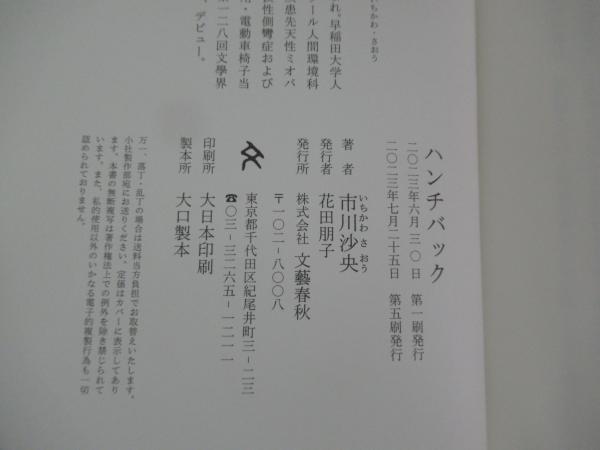 ハンチバック
二〇二三年六月三〇日　第一刷発行
二〇二三年七月二十五日　第五刷発行
著　者　市川沙央
いちかわ さおう
発行者　花田朋子
発行所　株式会社 文藝春秋
〒一〇二-八〇〇八
東京都千代田区紀尾井町三-二三
☎〇三-三二六五-一二一一
印刷所　大日本印刷
製本所　大口製本
万一、落丁・乱丁の場合は送料当方負担でお取替えいたします。
小社製作部宛にお送りください。定価はカバーに表示してあり
ます。本書の無断複写は著作権法上での例外を除き禁じられて
います。また、私的使用以外のいかなる電子的複製行為も一切
認められておりません。
いちかわ・さおう
れ。早稲田大学人
ール人間環境科
患先天性ミオパ
性側彎症および
用・電動車椅子当
一二八回文學界
、デビュー。